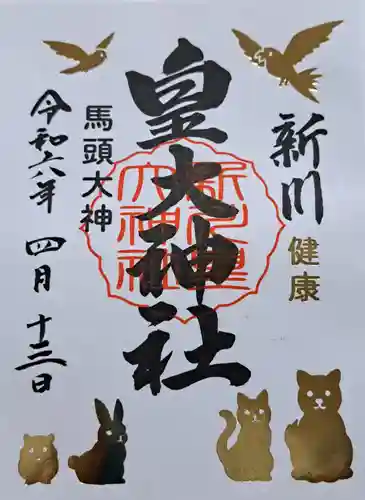 新川
健康
皇大神社
馬頭大神
令和六年 四月 十三日